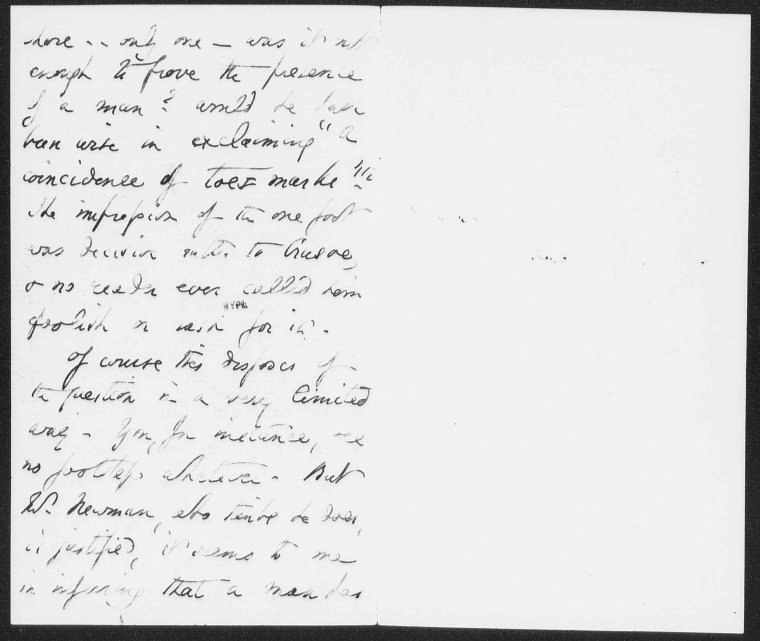 shore -- only one - was it not
enough to prove the presence
of a man? would he have
been wise in exclaiming "a
coincidence of toes marks"!!
The impression of the one foot
was decisive to Crusoe,
& no reader ever called him
foolish or rash for it.
Of course this disposes of
the question in a very limited
way - You, for instance, see
no footsteps whatever - But
Mr. Newman, who thinks he does,
is justified, it seems to me
in inferring that a man has